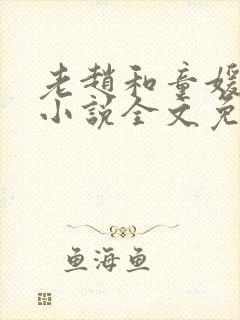 老赵和童媛
小説全文免
鱼海鱼